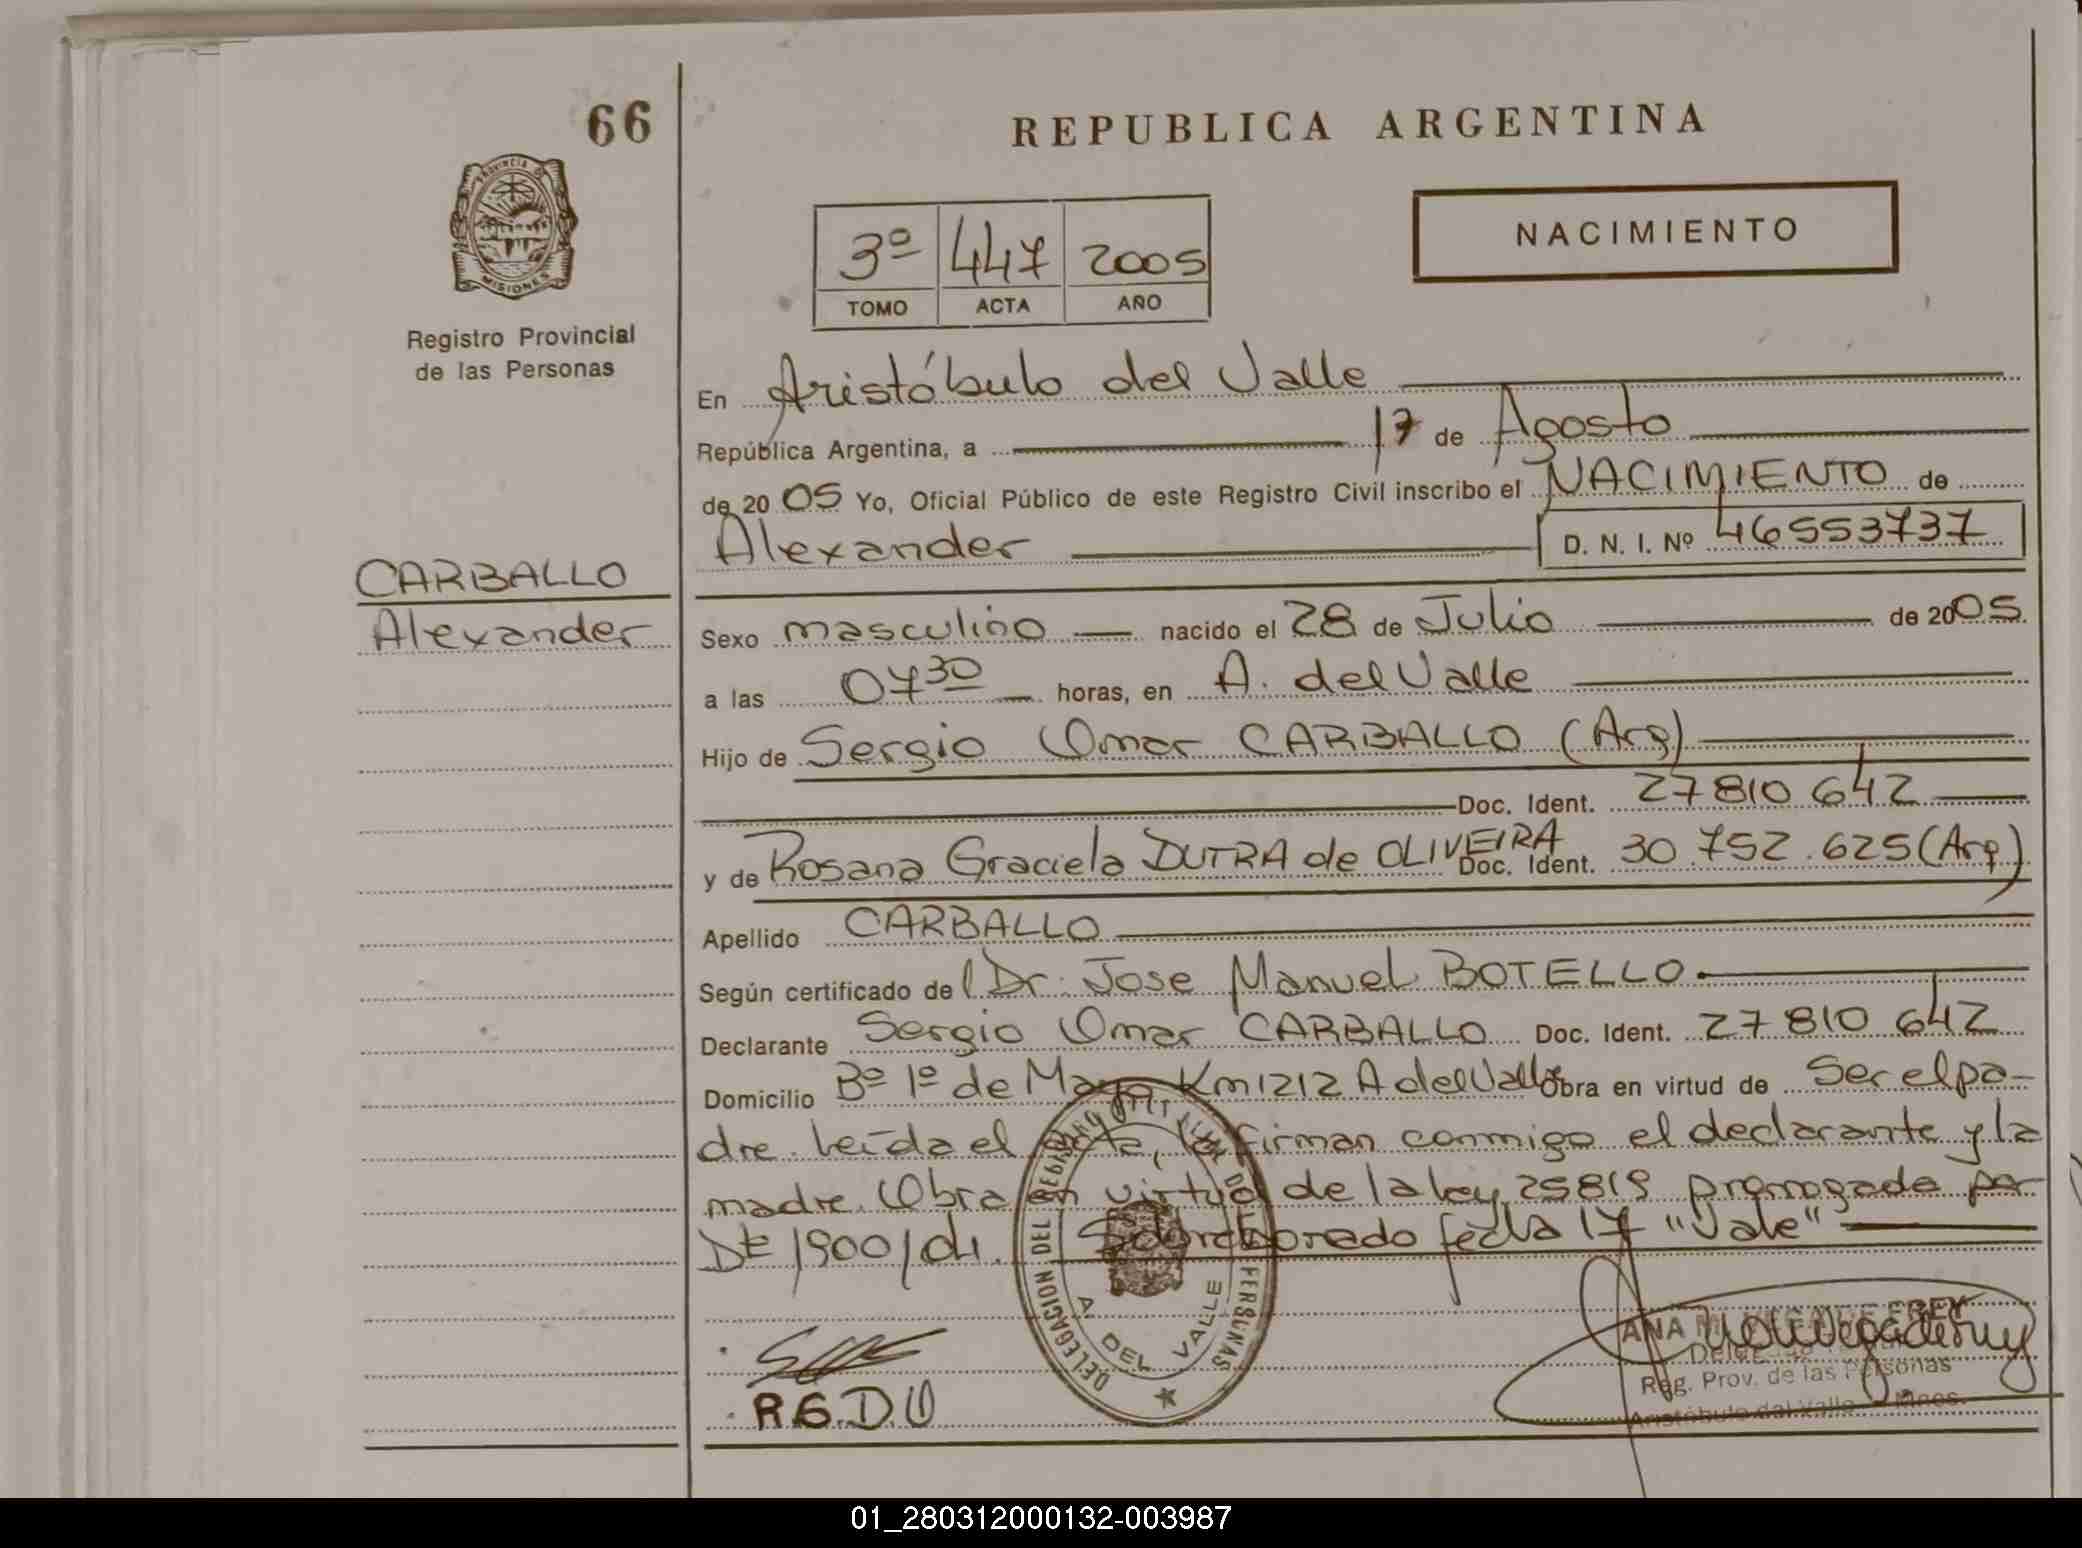 66
REPUBLICA ARGENTINA
PROVINCIA DE
MISIONES
Registro Provincial
de las Personas
NACIMIENTO
3º 447 2005
TOMO ACTA AÑO
En Aristóbulo del Valle
República Argentina, a 17 de Agosto
de 20 05 Yo, Oficial Público de este Registro Civil inscribo el NACIMIENTO de
Alexander D. N. I. Nº 46553737
CARBALLO
Alexander
Sexo masculino nacido el 28 de Julio de 2005
a las 07 30 horas, en A. del Valle
Hijo de Sergio Omar CARBALLO (Arg)
Doc. Ident. 27 810 642
y de Rosana Graciela DUTRA de OLIVEIRA Doc. Ident. 30.752.625 (Arg)
Apellido CARBALLO
Según certificado del Dr. Jose Manuel BOTELLO
Declarante Sergio Omar CARBALLO Doc. Ident. 27 810 642
Domicilio Bº 1º de Mayo Km 1212 A del Valle Obra en virtud de Ser el pa-
dre. Leída el acta, la firman conmigo el declarante y la
madre. Obra en virtud de la ley 25819 prorrogada por
Dt 1900/04. Sobreborrado fecha 17 "Vale"
DELEGACION DEL REGISTRO DE PERSONAS
A. DEL VALLE
R G. D O
ANA FREY
Reg. Prov. de las Personas
Aristóbulo del Valle - Mnes.
01_280312000132-003987